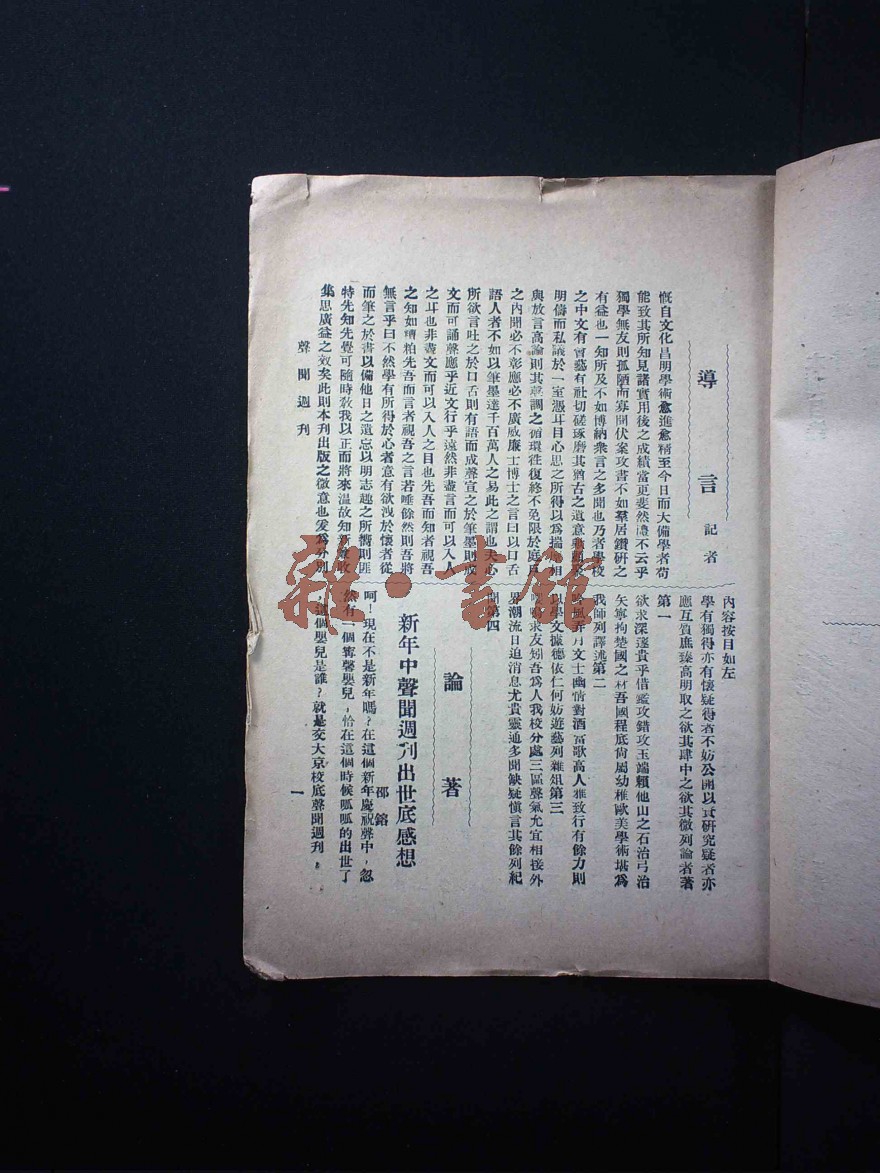 導言
記者
慨自文化昌明學術愈進愈精至今日而大備學者苟
能致其所知見諸實用後之成績當更斐然禮不云乎
獨學無友則孤陋而寡聞伏案攻書不如羣居鑽研之
有益也一知所及不如博納衆言之多聞也乃者學校
之中文有會藝有社切磋琢磨其猶古之遺意歟顧
明儔而私議於一室憑耳目心思之所得以爲揣摩相
與放言高論則其聲調之循環往復終不免限於庭戶
之內聞必不彰應必不廣威廉士博士之言曰以口舌
語人者不如以筆墨達千百萬人之易此之謂也夫心
所欲言吐之於口舌則有語而成聲宣之於筆墨則成
文而可誦聲應乎近文行乎遠然非盡言而可以入人
之耳也非盡文而可以入人之目也先吾而知者視吾
之知如糟粕先吾而言者視吾之言若唾餘然則吾將
無言乎曰不然學有所得於心者意有欲洩於懷者從
而筆之於書以備他日之遺忘以明志趣之所嚮則匪
特先知先覺可隨時敎我以正而將來溫故知新難收
集思廣益之效矣此則本刊出版之微意也爰爲分別
內容按目如左
學有獨得亦有懷疑得者不妨公開以資硏究疑者亦
應互質庶臻高明取之欲其肆中之欲其微列論者著
第一
欲求深邃貴乎借鑑攻錯攻玉端賴他山之石治弓治
矢寧拘楚國之材吾國程底尙屬幼稚歐美學術堪爲
我師列譯述第二
吟風弄月文士幽情對酒當歌高人雅致行有餘力則
以學文據德依仁何妨遊藝列雜俎第三
嚶鳴求友矧吾爲人我校分處三區聲氣允宜相接外
界潮流日迫消息尤貴靈通多聞缺疑愼言其餘列紀
聞第四
論著
新年中聲聞週刋出世底感想
邵鎔
呵！現在不是新年嗎？在這個新年慶祝聲中，忽
然有一個寗馨嬰兒，恰在這個時候呱呱的出世了
，這個嬰兒是誰？就是交大京校底聲聞週刋。
聲聞週刊
一
雜·書館